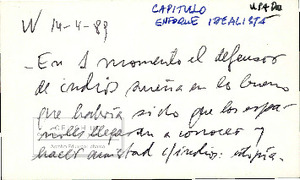 CAPITULO UPADII
ENFOQUE IDEALISTA
W 14-4-89
- En 1 momento el defensor
de indios sueña en lo bueno
que habría sido que los espa-
ñoles llegaran a conocer y
hacer amistad c/indios: utopía.